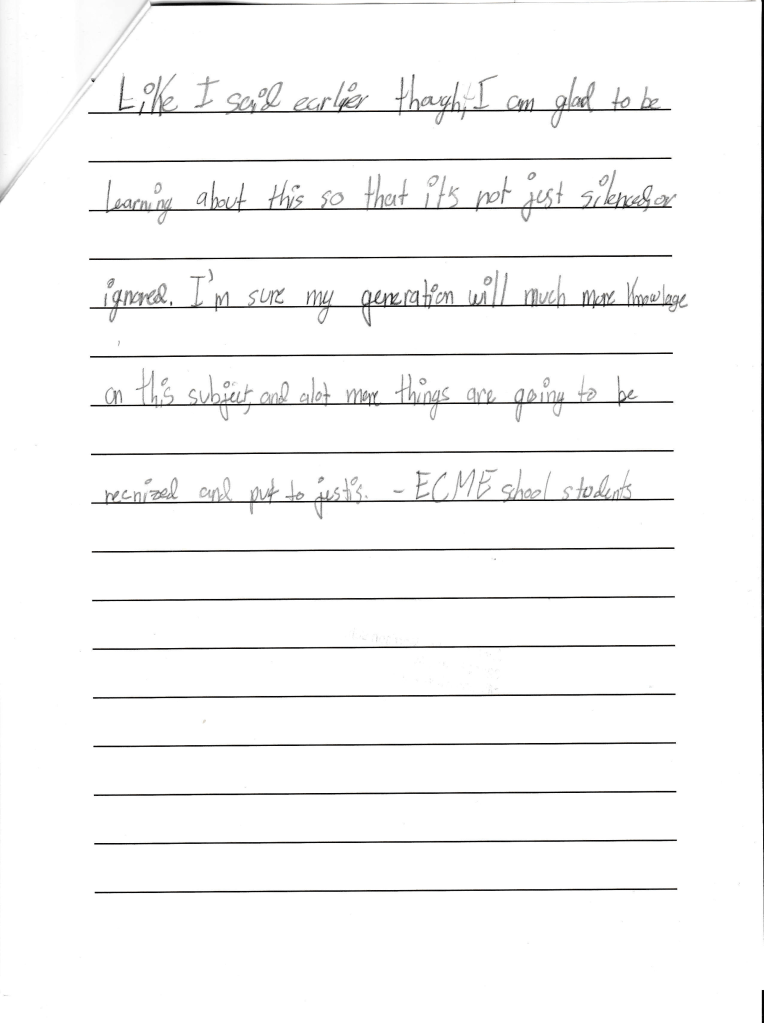 Like I said earlier though, I am glad to be
learning about this so that it's not just silenced, or
ignored. I'm sure my generation will much more Knowlage
on this subject, and alot more things are going to be
recnized and put to justis. - ECME school students